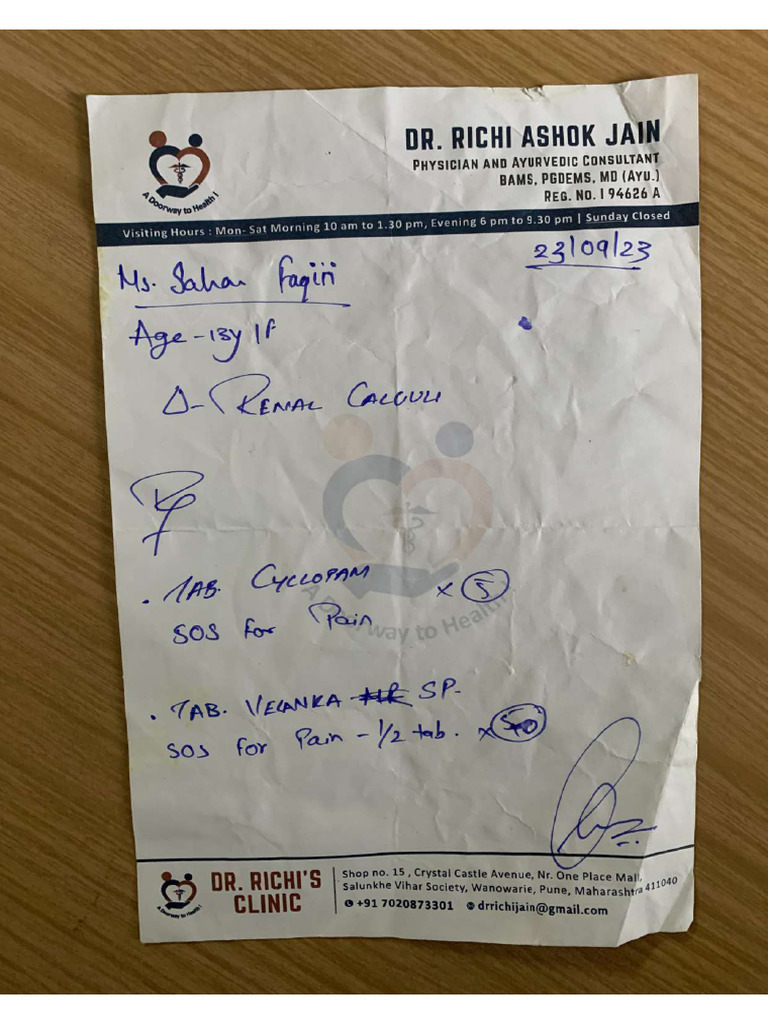 DR. RICHI ASHOK JAIN
PHYSICIAN AND AYURVEDIC CONSULTANT
BAMS, PGDEMS, MD (AYU.)
REG. NO. I 94626 A
A Doorway to Health !
Visiting Hours : Mon- Sat Morning 10 am to 1.30 pm, Evening 6 pm to 9.30 pm | Sunday Closed
23/09/23
Ms. Sahar Faqiri
Age - 13y / F
Δ - RENAL CALCULI
Rx
A Doorway to Health !
. TAB. CYCLOPAM × 5
SOS for Pain
. TAB. VELANKA SP-
SOS for Pain - 1/2 tab. ×
DR. RICHI'S
CLINIC
A Doorway to Health !
Shop no. 15 , Crystal Castle Avenue, Nr. One Place Mall,
Salunkhe Vihar Society, Wanowarie, Pune, Maharashtra 411040
+91 7020873301 drrichijain@gmail.com